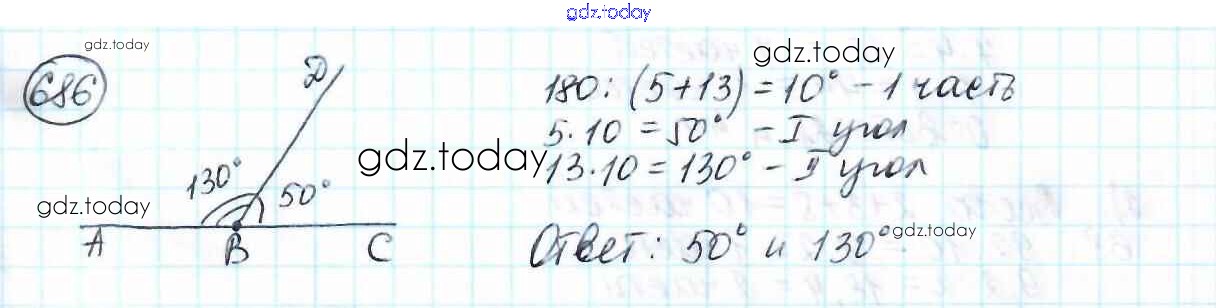 gdz.today
686
gdz.today
D
gdz.today
180 : (5+13) = 10° - 1 часть
5·10 = 50° - I угол
gdz.today
13·10 = 130° - II угол
130°
50°
gdz.today
A
B
C
Ответ: 50° и 130°
gdz.today